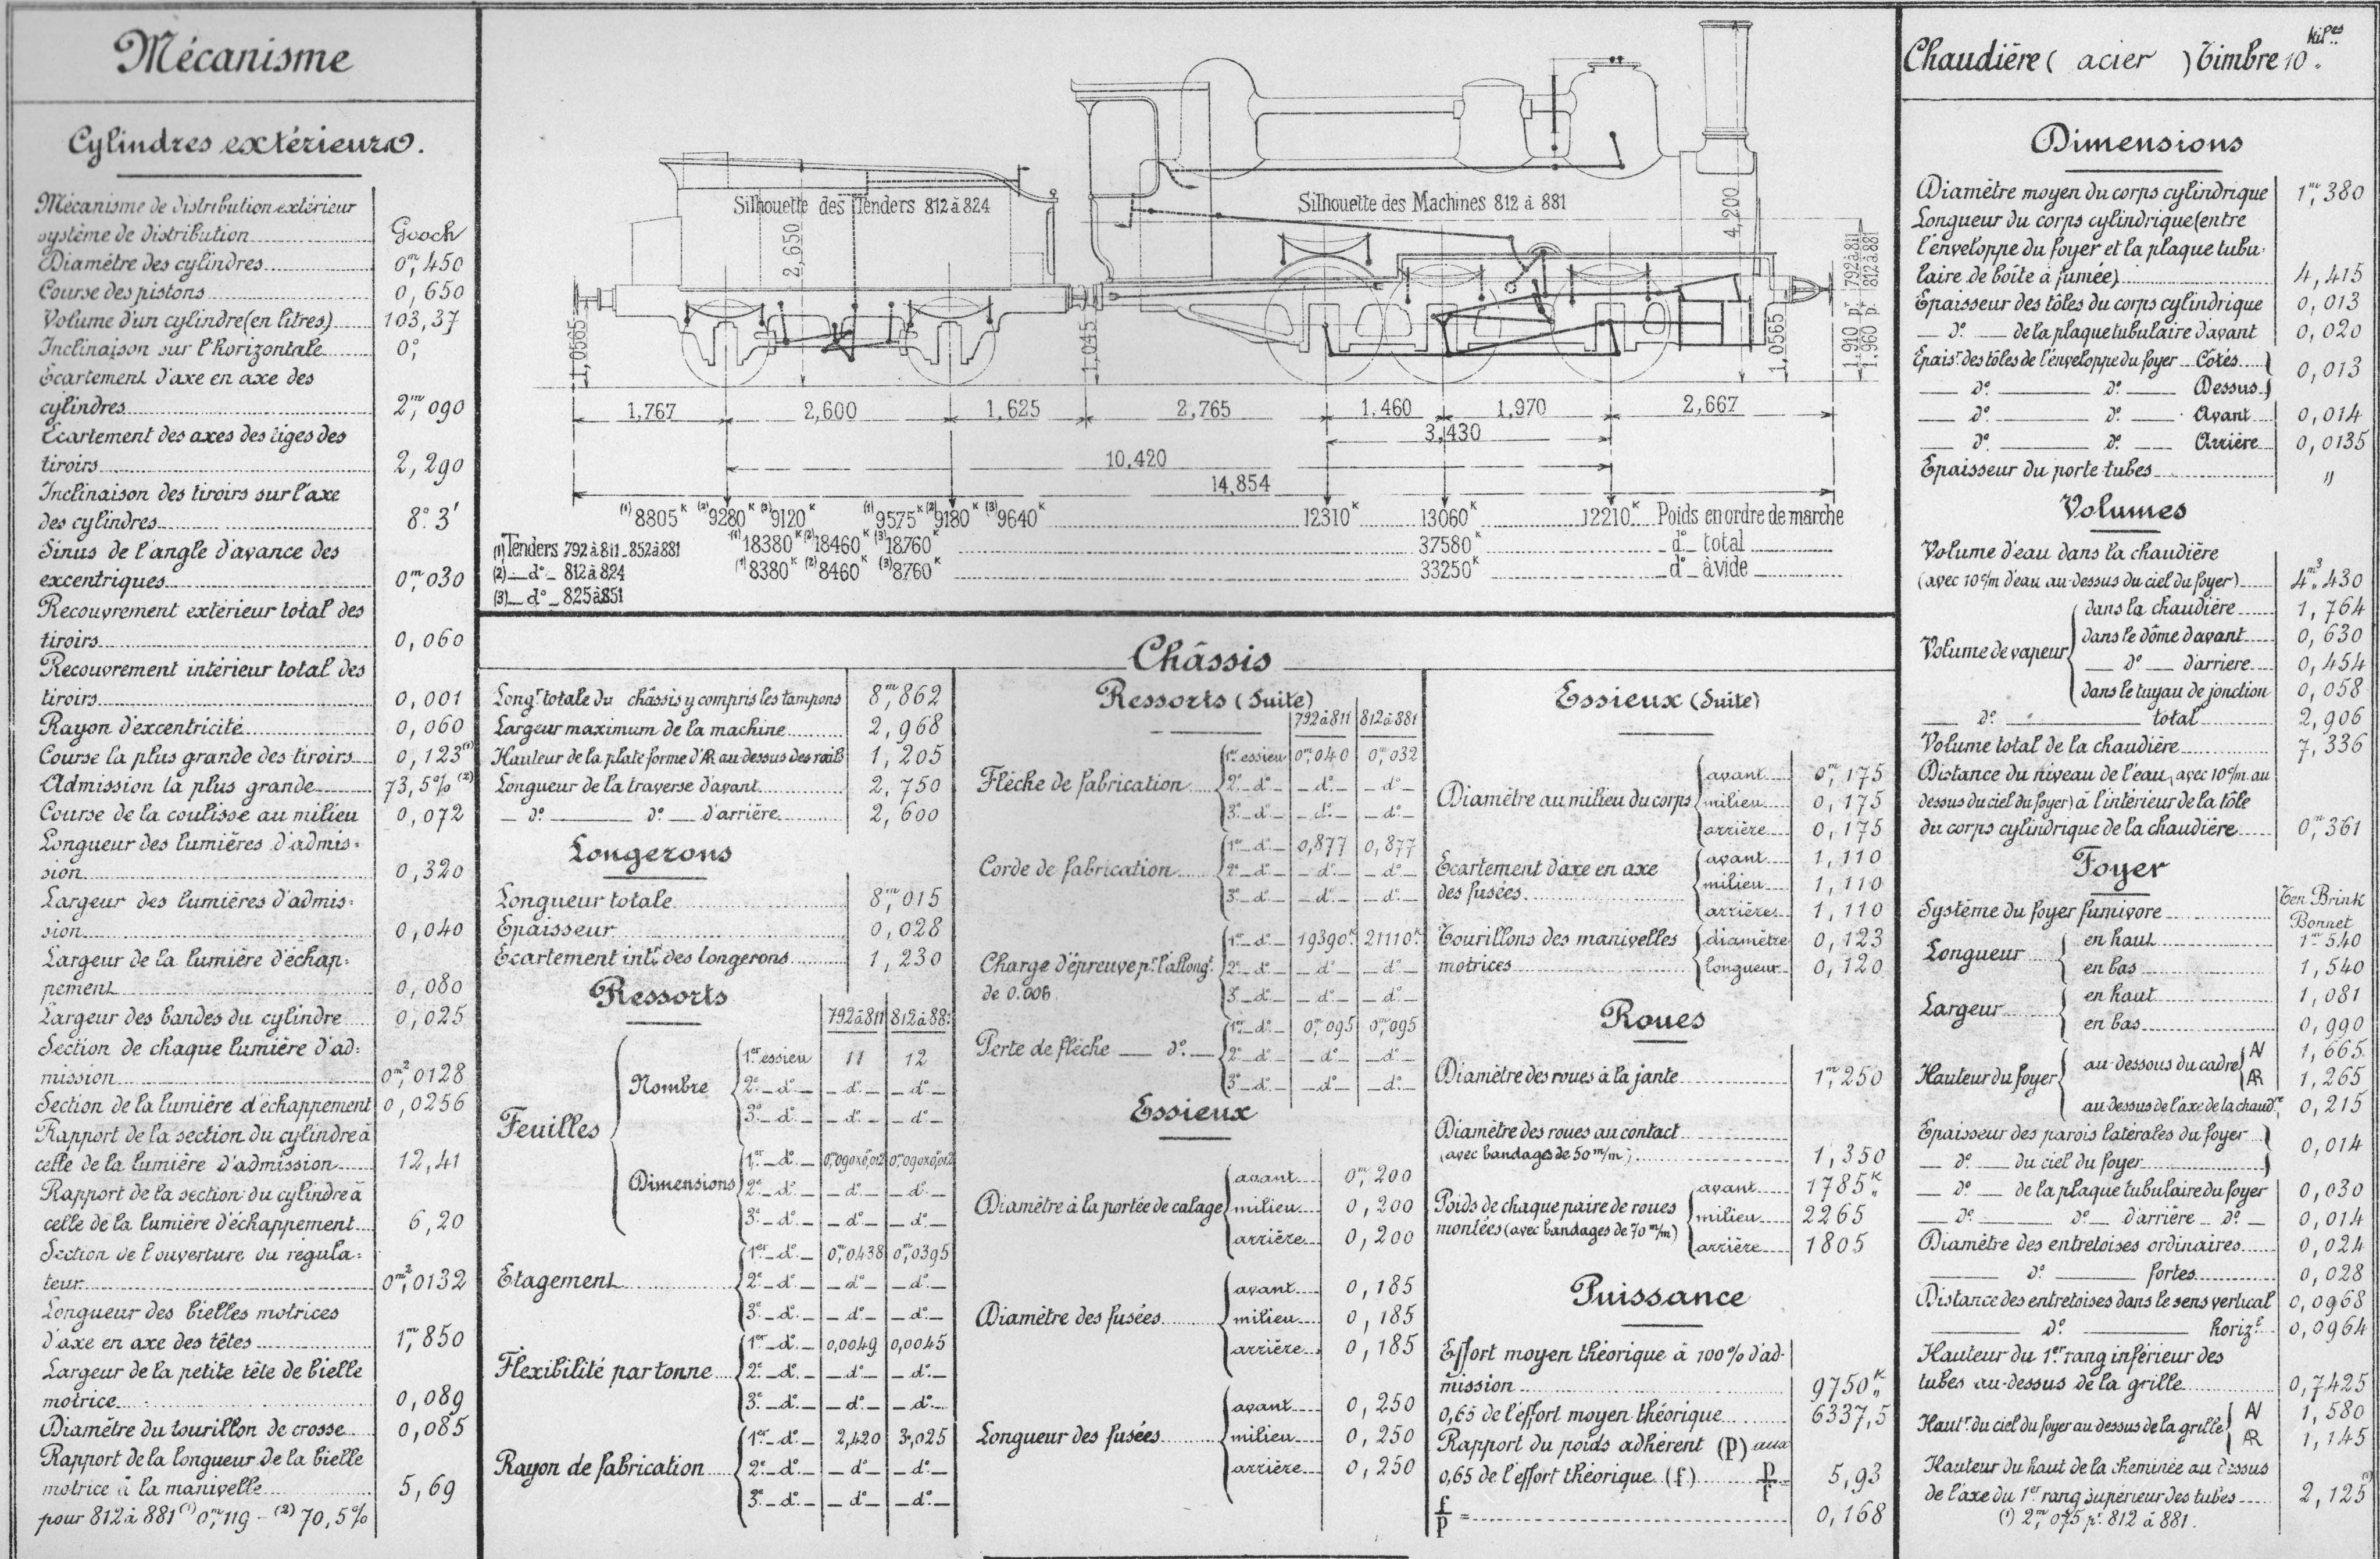 Mécanisme
Cylindres extérieurs.
Mécanisme de distribution extérieur
système de distribution Gooch
Diamètre des cylindres 0m,450
Course des pistons 0,650
Volume d'un cylindre (en litres) 103,37
Inclinaison sur l'horizontale 0°,
Ecartement d'axe en axe des
cylindres 2m,090
Ecartement des axes des tiges des
tiroirs 2,290
Inclinaison des tiroirs sur l'axe
des cylindres 8° 3'
Sinus de l'angle d'avance des
excentriques 0m,030
Recouvrement extérieur total des
tiroirs 0,060
Recouvrement intérieur total des
tiroirs 0,001
Rayon d'excentricité 0,060
Course la plus grande des tiroirs 0,123(1)
Admission la plus grande 73,5%(2)
Course de la coulisse au milieu 0,072
Longueur des lumières d'admis-
sion 0,320
Largeur des lumières d'admis-
sion 0,040
Largeur de la lumière d'échap-
pement 0,080
Largeur des bandes du cylindre 0,025
Section de chaque lumière d'ad-
mission 0m²,0128
Section de la lumière d'échappement 0,0256
Rapport de la section du cylindre à
celle de la lumière d'admission 12,41
Rapport de la section du cylindre à
celle de la lumière d'échappement 6,20
Section de l'ouverture du régula-
teur 0m²,0132
Longueur des bielles motrices
d'axe en axe des têtes 1m,850
Largeur de la petite tête de bielle
motrice 0,089
Diamètre du tourillon de crosse 0,085
Rapport de la longueur de la bielle
motrice à la manivelle 5,69
pour 812 à 881 (1) 0m,119 - (2) 70,5%
Silhouette des Tenders 812 à 824
Silhouette des Machines 812 à 881
2,650
4,200
1,0565
1,045
1,0565
1.910 pr 792 à 811
1.960 pr 812 à 881
1,767 2,600 1,625 2,765 1.460 1,970 2,667
3,430
10,420
14,854
(1)8805K (2)9280K (3)9120K (1)9575K (2)9180K (3)9640K 12310K 13060K 12210K Poids en ordre de marche
(1) Tenders 792 à 811_852 à 881 (1)18380K (2)18460K (3)18760K 37580K _d°_ total
(2) _d°_ 812 à 824 (1)8380K (2)8460K (3)8760K 33250K _d°_ à vide
(3) _d°_ 825 à 851
Châssis
Longr totale du châssis y compris les tampons 8m,862
Largeur maximum de la machine 2,968
Hauteur de la plate forme d'AR au dessus des rails 1,205
Longueur de la traverse d'avant 2,750
_ d° _ d° _ d'arrière 2,600
Longerons
Longueur totale 8m,015
Epaisseur 0,028
Ecartement intr des longerons 1,230
Ressorts
792 à 811 812 à 88
Feuilles
Nombre
1er essieu 11 12
2e _d°_ _d°_ _d°_
3e _d°_ _d°_ _d°_
Dimensions
1er _d°_ 0m,090x0m,012 0m,090x0m,012
2e _d°_ _d°_ _d°_
3e _d°_ _d°_ _d°_
Etagement
1er _d°_ 0m,0438 0m,0395
2e _d°_ _d°_ _d°_
3e _d°_ _d°_ _d°_
Flexibilité par tonne
1er _d°_ 0,0049 0,0045
2e _d°_ _d°_ _d°_
3e _d°_ _d°_ _d°_
Rayon de fabrication
1er _d°_ 2,420 3,025
2e _d°_ _d°_ _d°_
3e _d°_ _d°_ _d°_
Ressorts (Suite)
792 à 811 812 à 881
Flèche de fabrication
1er essieu 0m,040 0m,032
2e _d°_ _d°_ _d°_
3e _d°_ _d°_ _d°_
Corde de fabrication
1er _d°_ 0,877 0,877
2e _d°_ _d°_ _d°_
3e _d°_ _d°_ _d°_
Charge d'épreuve pr l'allongt
de 0.006
1er _d°_ 19390K 21110K
2e _d°_ _d°_ _d°_
3e _d°_ _d°_ _d°_
Perte de flèche _ d° _
1er _d°_ 0m,095 0m,095
2e _d°_ _d°_ _d°_
3e _d°_ _d°_ _d°_
Essieux
Diamètre à la portée de calage
avant 0m,200
milieu 0,200
arrière 0,200
Diamètre des fusées
avant 0,185
milieu 0,185
arrière 0,185
Longueur des fusées
avant 0,250
milieu 0,250
arrière 0,250
Essieux (Suite)
Diamètre au milieu du corps
avant 0m,175
milieu 0,175
arrière 0,175
Ecartement d'axe en axe
des fusées
avant 1,110
milieu 1,110
arrière 1,110
Tourillons des manivelles
motrices
diamètre 0,123
longueur 0,120
Roues
Diamètre des roues à la jante 1m,250
Diamètre des roues au contact
(avec bandages de 50 m/m) 1,350
Poids de chaque paire de roues
montées (avec bandages de 70 m/m)
avant 1785K
milieu 2265
arrière 1805
Puissance
Effort moyen théorique à 100% d'ad-
mission 9750K
0,65 de l'effort moyen théorique 6337,5
Rapport du poids adhérent (P) aux
0,65 de l'effort théorique (f) P/f = 5,93
f/P = 0,168
Chaudière ( acier ) Timbre 10 kilos
Dimensions
Diamètre moyen du corps cylindrique 1m,380
Longueur du corps cylindrique (entre
l'enveloppe du foyer et la plaque tubu-
laire de boîte à fumée) 4,415
Epaisseur des tôles du corps cylindrique 0,013
_ d° _ de la plaque tubulaire d'avant 0,020
Epaisr des tôles de l'enveloppe du foyer _ Côtés
_ d° _ d° _ Dessus 0,013
_ d° _ d° _ Avant 0,014
_ d° _ d° _ Arrière 0,0135
Epaisseur du porte-tubes "
Volumes
Volume d'eau dans la chaudière
(avec 10 c/m d'eau au-dessus du ciel du foyer) 4m³,430
Volume de vapeur
dans la chaudière 1,764
dans le dôme d'avant 0,630
_ d° _ d'arrière 0,454
dans le tuyau de jonction 0,058
_ d° _ total 2,906
Volume total de la chaudière 7,336
Distance du niveau de l'eau, avec 10 c/m au
dessus du ciel du foyer) à l'intérieur de la tôle
du corps cylindrique de la chaudière 0m,361
Foyer
Système du foyer fumivore Ten Brink
Bonnet
Longueur
en haut 1m,540
en bas 1,540
Largeur
en haut 1,081
en bas 0,990
Hauteur du foyer
au-dessous du cadre AV 1,665
AR 1,265
au-dessus de l'axe de la chaudre 0,215
Epaisseur des parois latérales du foyer
_ d° _ du ciel du foyer 0,014
_ d° _ de la plaque tubulaire du foyer 0,030
_ d° _ d° _ d'arrière _ d° _ 0,014
Diamètre des entretoises ordinaires 0,024
_ d° _ fortes 0,028
Distance des entretoises dans le sens vertical 0,0968
_ d° _ horizt 0,0964
Hauteur du 1er rang inférieur des
tubes au-dessus de la grille 0,7425
Hautr du ciel du foyer au dessus de la grille AV 1,580
AR 1,145
Hauteur du haut de la cheminée au dessus
de l'axe du 1er rang supérieur des tubes 2,125(1)
(1) 2m,075 pr 812 à 881.